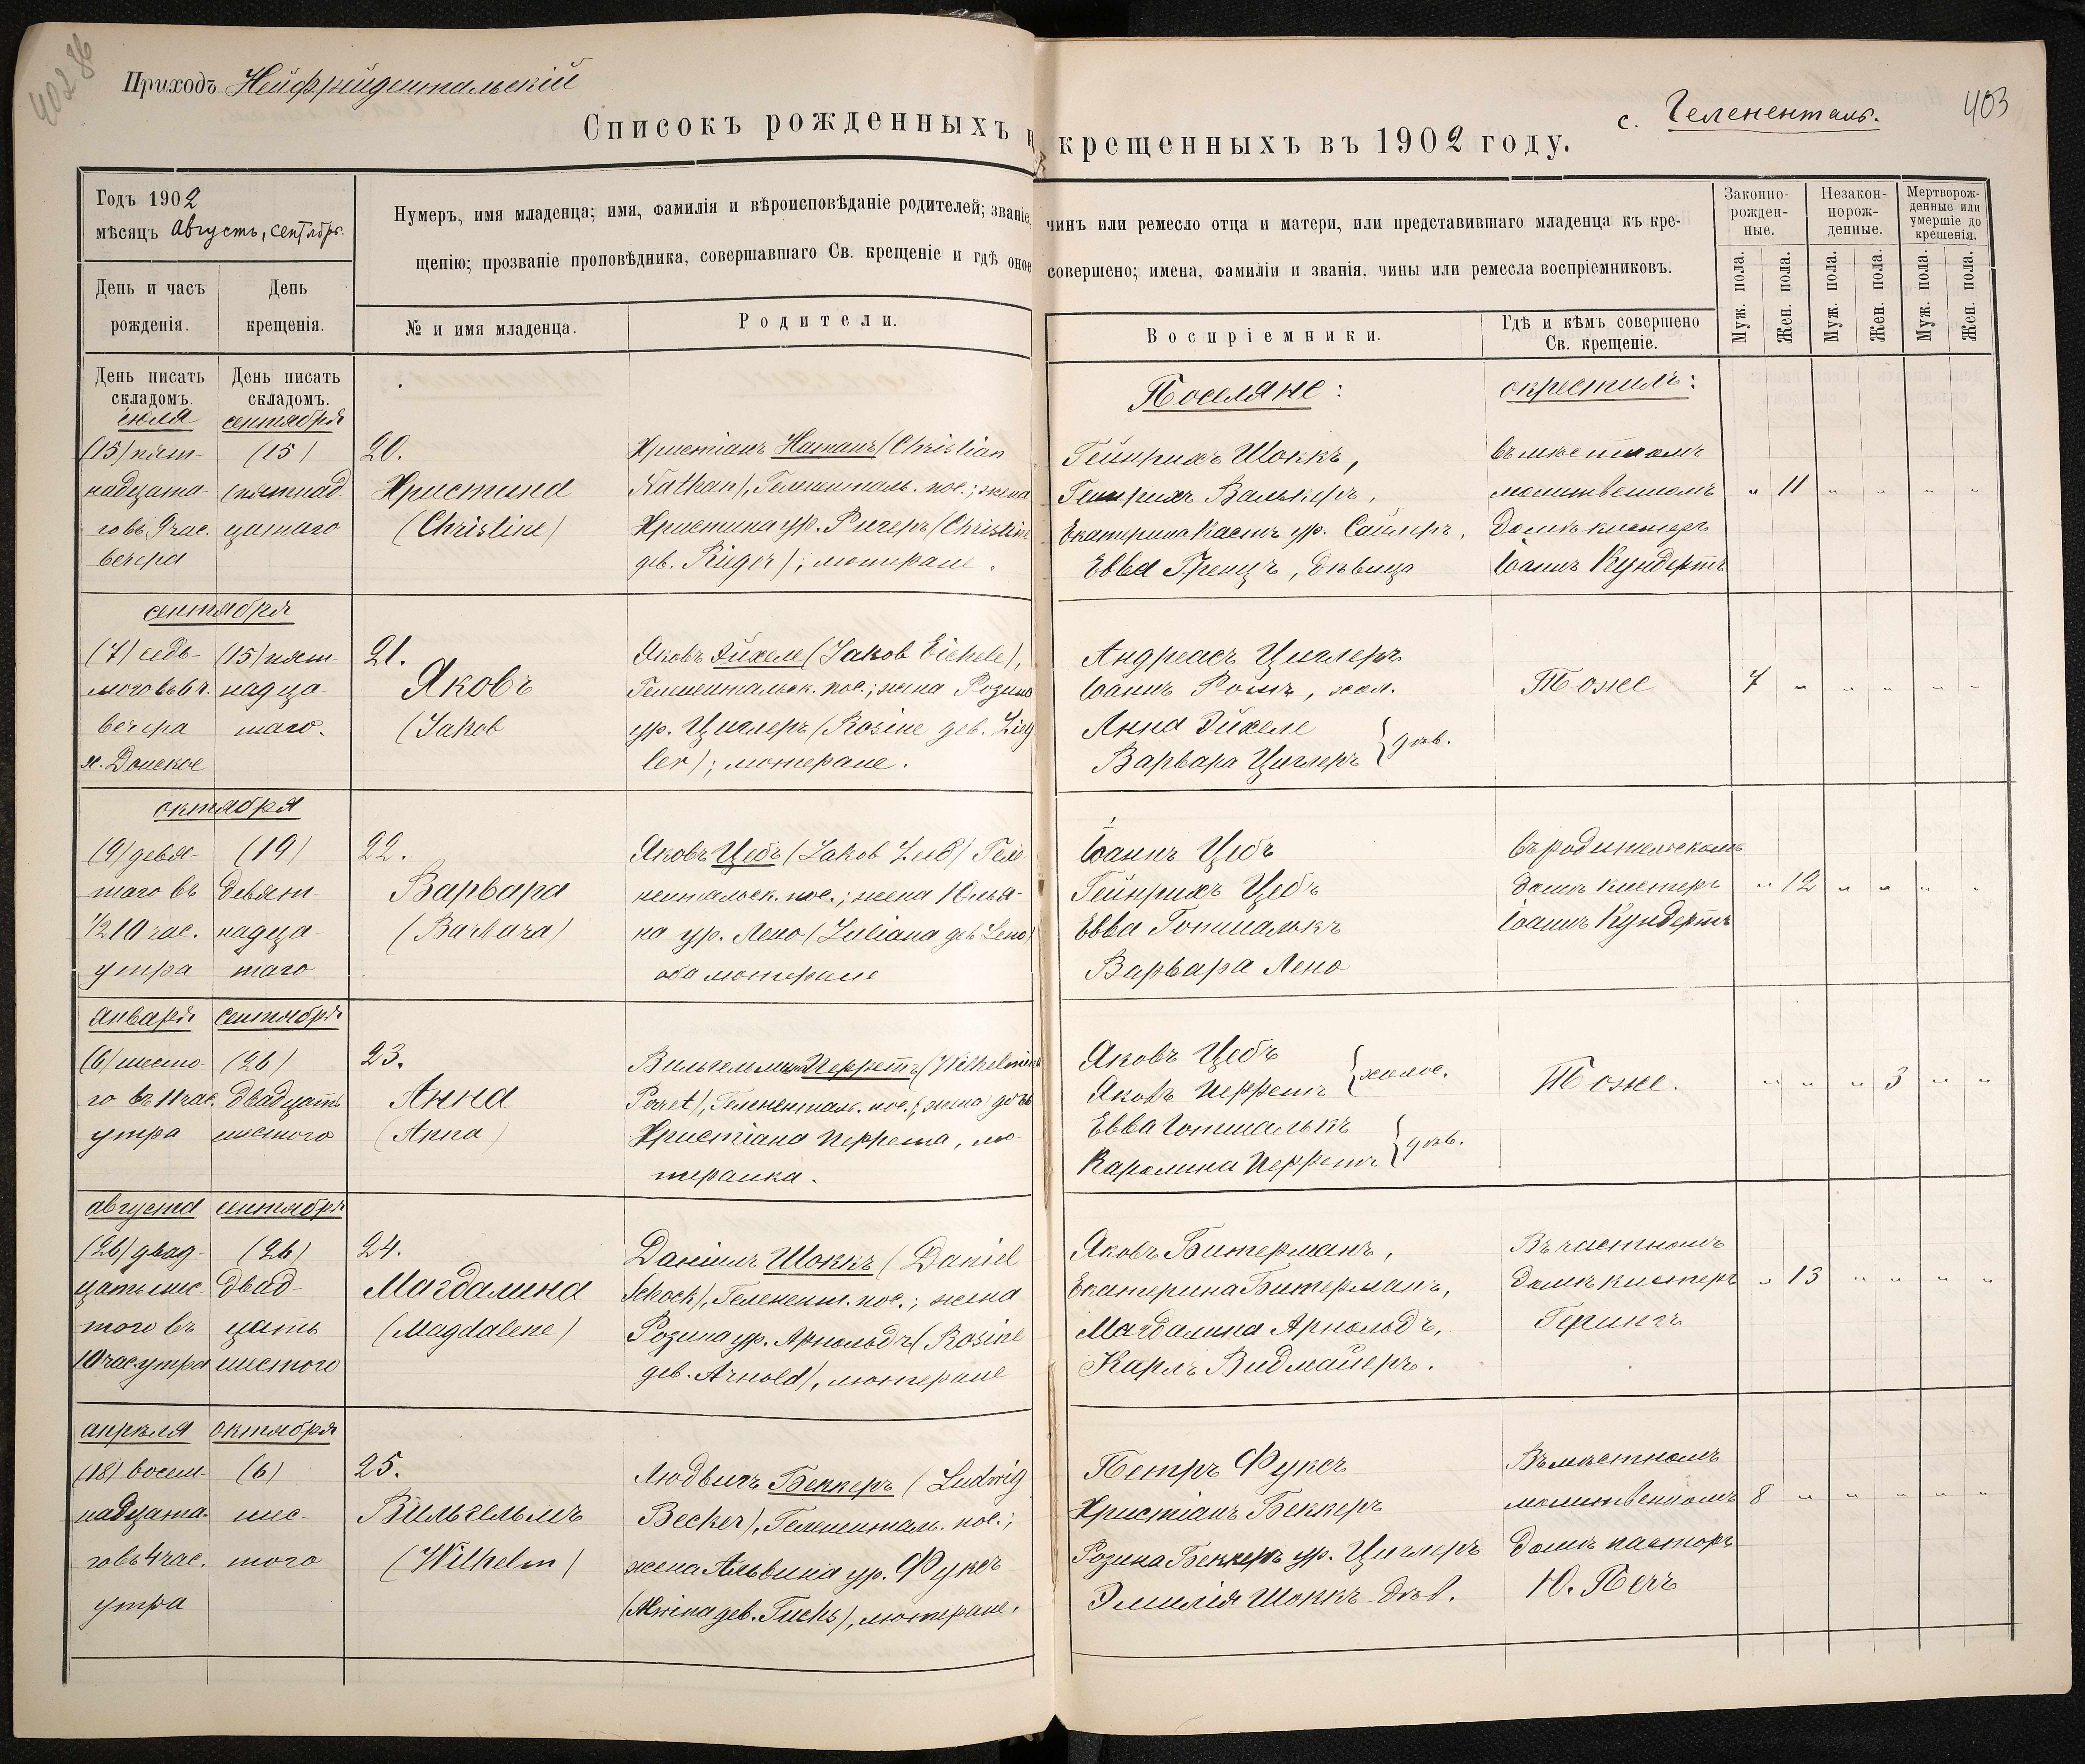 402
Приходъ Нейфрейдентальскій
с. Гелененталь.
403
Списокъ рожденныхъ и крещенныхъ въ 1902 году.
Годъ 1902
мѣсяцъ Августъ, сентябрь.
Нумеръ, имя младенца; имя, фамилія и вѣроисповѣданіе родителей; званіе, чинъ или ремесло отца и матери, или представившаго младенца къ кре-
щенію; прозваніе проповѣдника, совершавшаго Св. крещеніе и гдѣ оное совершено; имена, фамиліи и званія, чины или ремесла воспріемниковъ.
Законно-
рожден-
ные.
Незакон-
норож-
денные.
Мертворож-
денные или
умершіе до
крещенія.
День и часъ
рожденія.
День
крещенія.
№ и имя младенца.
Родители.
Воспріемники.
Гдѣ и кѣмъ совершено
Св. крещеніе.
Муж. пола.
Жен. пола.
Муж. пола.
Жен. пола.
Муж. пола.
Жен. пола.
День писать
складомъ.
День писать
складомъ.
Поселяне:
окрестилъ:
іюля
(15) пят-
надцата-
го въ 9 час.
вечера
сентября
(15)
(пятнад
цатаго
20.
Христина
(Christine)
Христіанъ Натанъ (Christian
Nathan), Гелененталь. пос.; жена
Христина ур. Ригеръ (Christine
geb. Rieger); лютеране.
Гейнрихъ Шоккъ,
Гейнрихъ Валькеръ,
Екатерина Кастъ ур. Сайлеръ,
Евва Пренцъ, дѣвица
въ мѣстномъ
молитвенномъ
домѣ кистеръ
Іоаннъ Кундертъ
" 11 " " " "
сентября
(7) седь-
мого въ 6 ч.
вечера
х. Донское
(15) пят-
надца-
таго.
21.
Яковъ
(Jakob
Яковъ Эйхеле (Jakob Eichele),
Гелененттальск. пос.; жена Розина
ур. Циглеръ (Rosine geb. Zieg
ler); лютеране.
Андреасъ Циглеръ
Іоаннъ Ротъ, хол.
Анна Эйхеле
Варвара Циглеръ } дѣв.
Тоже
7 " " " " "
октября
(9) девя-
таго въ
1/2 10 час.
утра
(19)
девят-
надца-
таго
22.
Варвара
(Barbara)
Яковъ Цебъ (Jakob Zeeb) Геле-
нентальск. пос.; жена Юлья-
на ур. Лено (Juliana geb Leno)
оба лютеране
Іоаннъ Цебъ
Гейнрихъ Цебъ
Евва Готшалькъ
Варвара Лено
въ родительскомъ
домѣ кистеръ
Іоаннъ Кундертъ
" 12 " " " "
января
(6) шесто-
го въ 11 час.
утра
сентября
(26)
двадцать
шестого
23.
Анна
(Anna)
Вильгельмина Перретъ (Wilhelmine
Perret), Гелененталь. пос.; дочь
Христіана Перрета, лю-
теранка.
Яковъ Цебъ
Яковъ Перретъ } холос.
Евва Готшалькъ
Каролина Перретъ } дѣв.
Тоже.
" " " 3 " "
августа
(26) двад-
цать шес-
того въ
10 час. утра
сентября
(26)
двад-
цать
шестого
24.
Магдалина
(Magdalene)
Даніилъ Шоккъ (Daniel
Schock), Геленент. пос.; жена
Розина ур. Арнольдъ (Rosine
geb. Arnold), лютеране
Яковъ Битерманъ,
Екатерина Битерманъ,
Магдалина Арнольдъ,
Карлъ Видмайеръ.
Въ частномъ
домѣ кистеръ
Герингъ
" 13 " " " "
апрѣля
(18) восем-
надцата-
го въ 4 час.
утра
октября
(6)
шес-
того
25.
Вильгельмъ
(Wilhelm)
Людвигъ Беккеръ (Ludwig
Becker), Гелененталь. пос.;
жена Альвина ур. Фуксъ
(Alwina geb. Fuchs), лютеране.
Петръ Фуксъ
Христіанъ Беккеръ
Розина Беккеръ ур. Циглеръ
Эмилія Шоккъ дѣв.
Въ мѣстномъ
молитвенномъ
домѣ пасторъ
Ю. Печъ
8 " " " " "